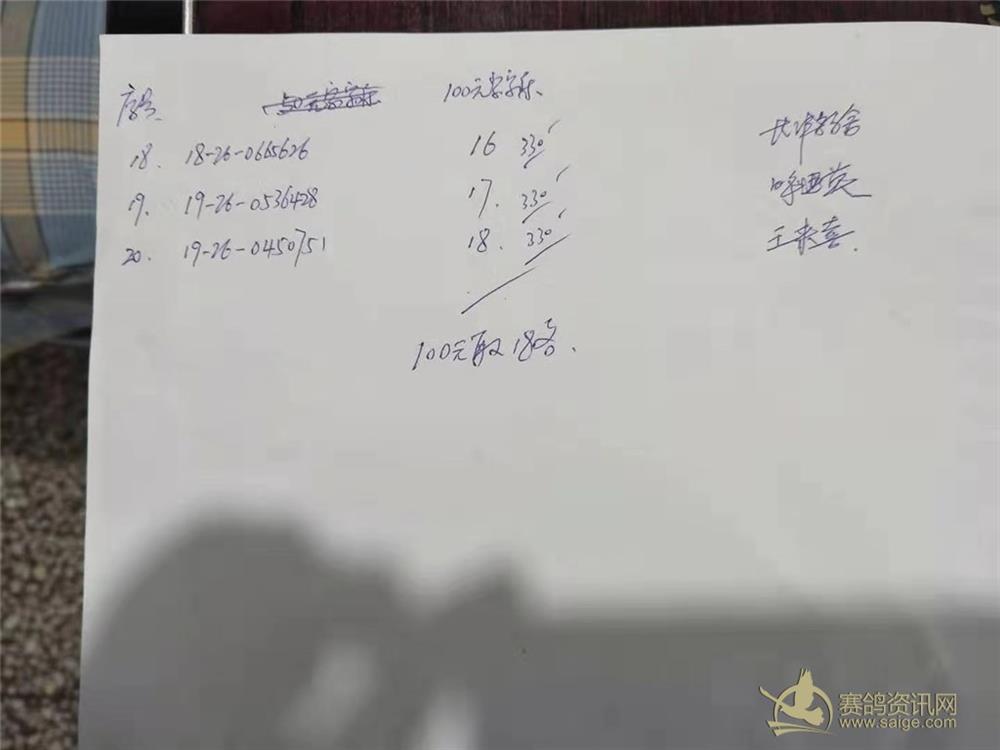 序号 100元
18. 18-26-0665626 16 330
19. 19-26-0536428 17. 330 呼亚英
20. 19-26-0450751 18. 330 王来喜.
100元取18名.
赛鸽资讯网
www.saige.com